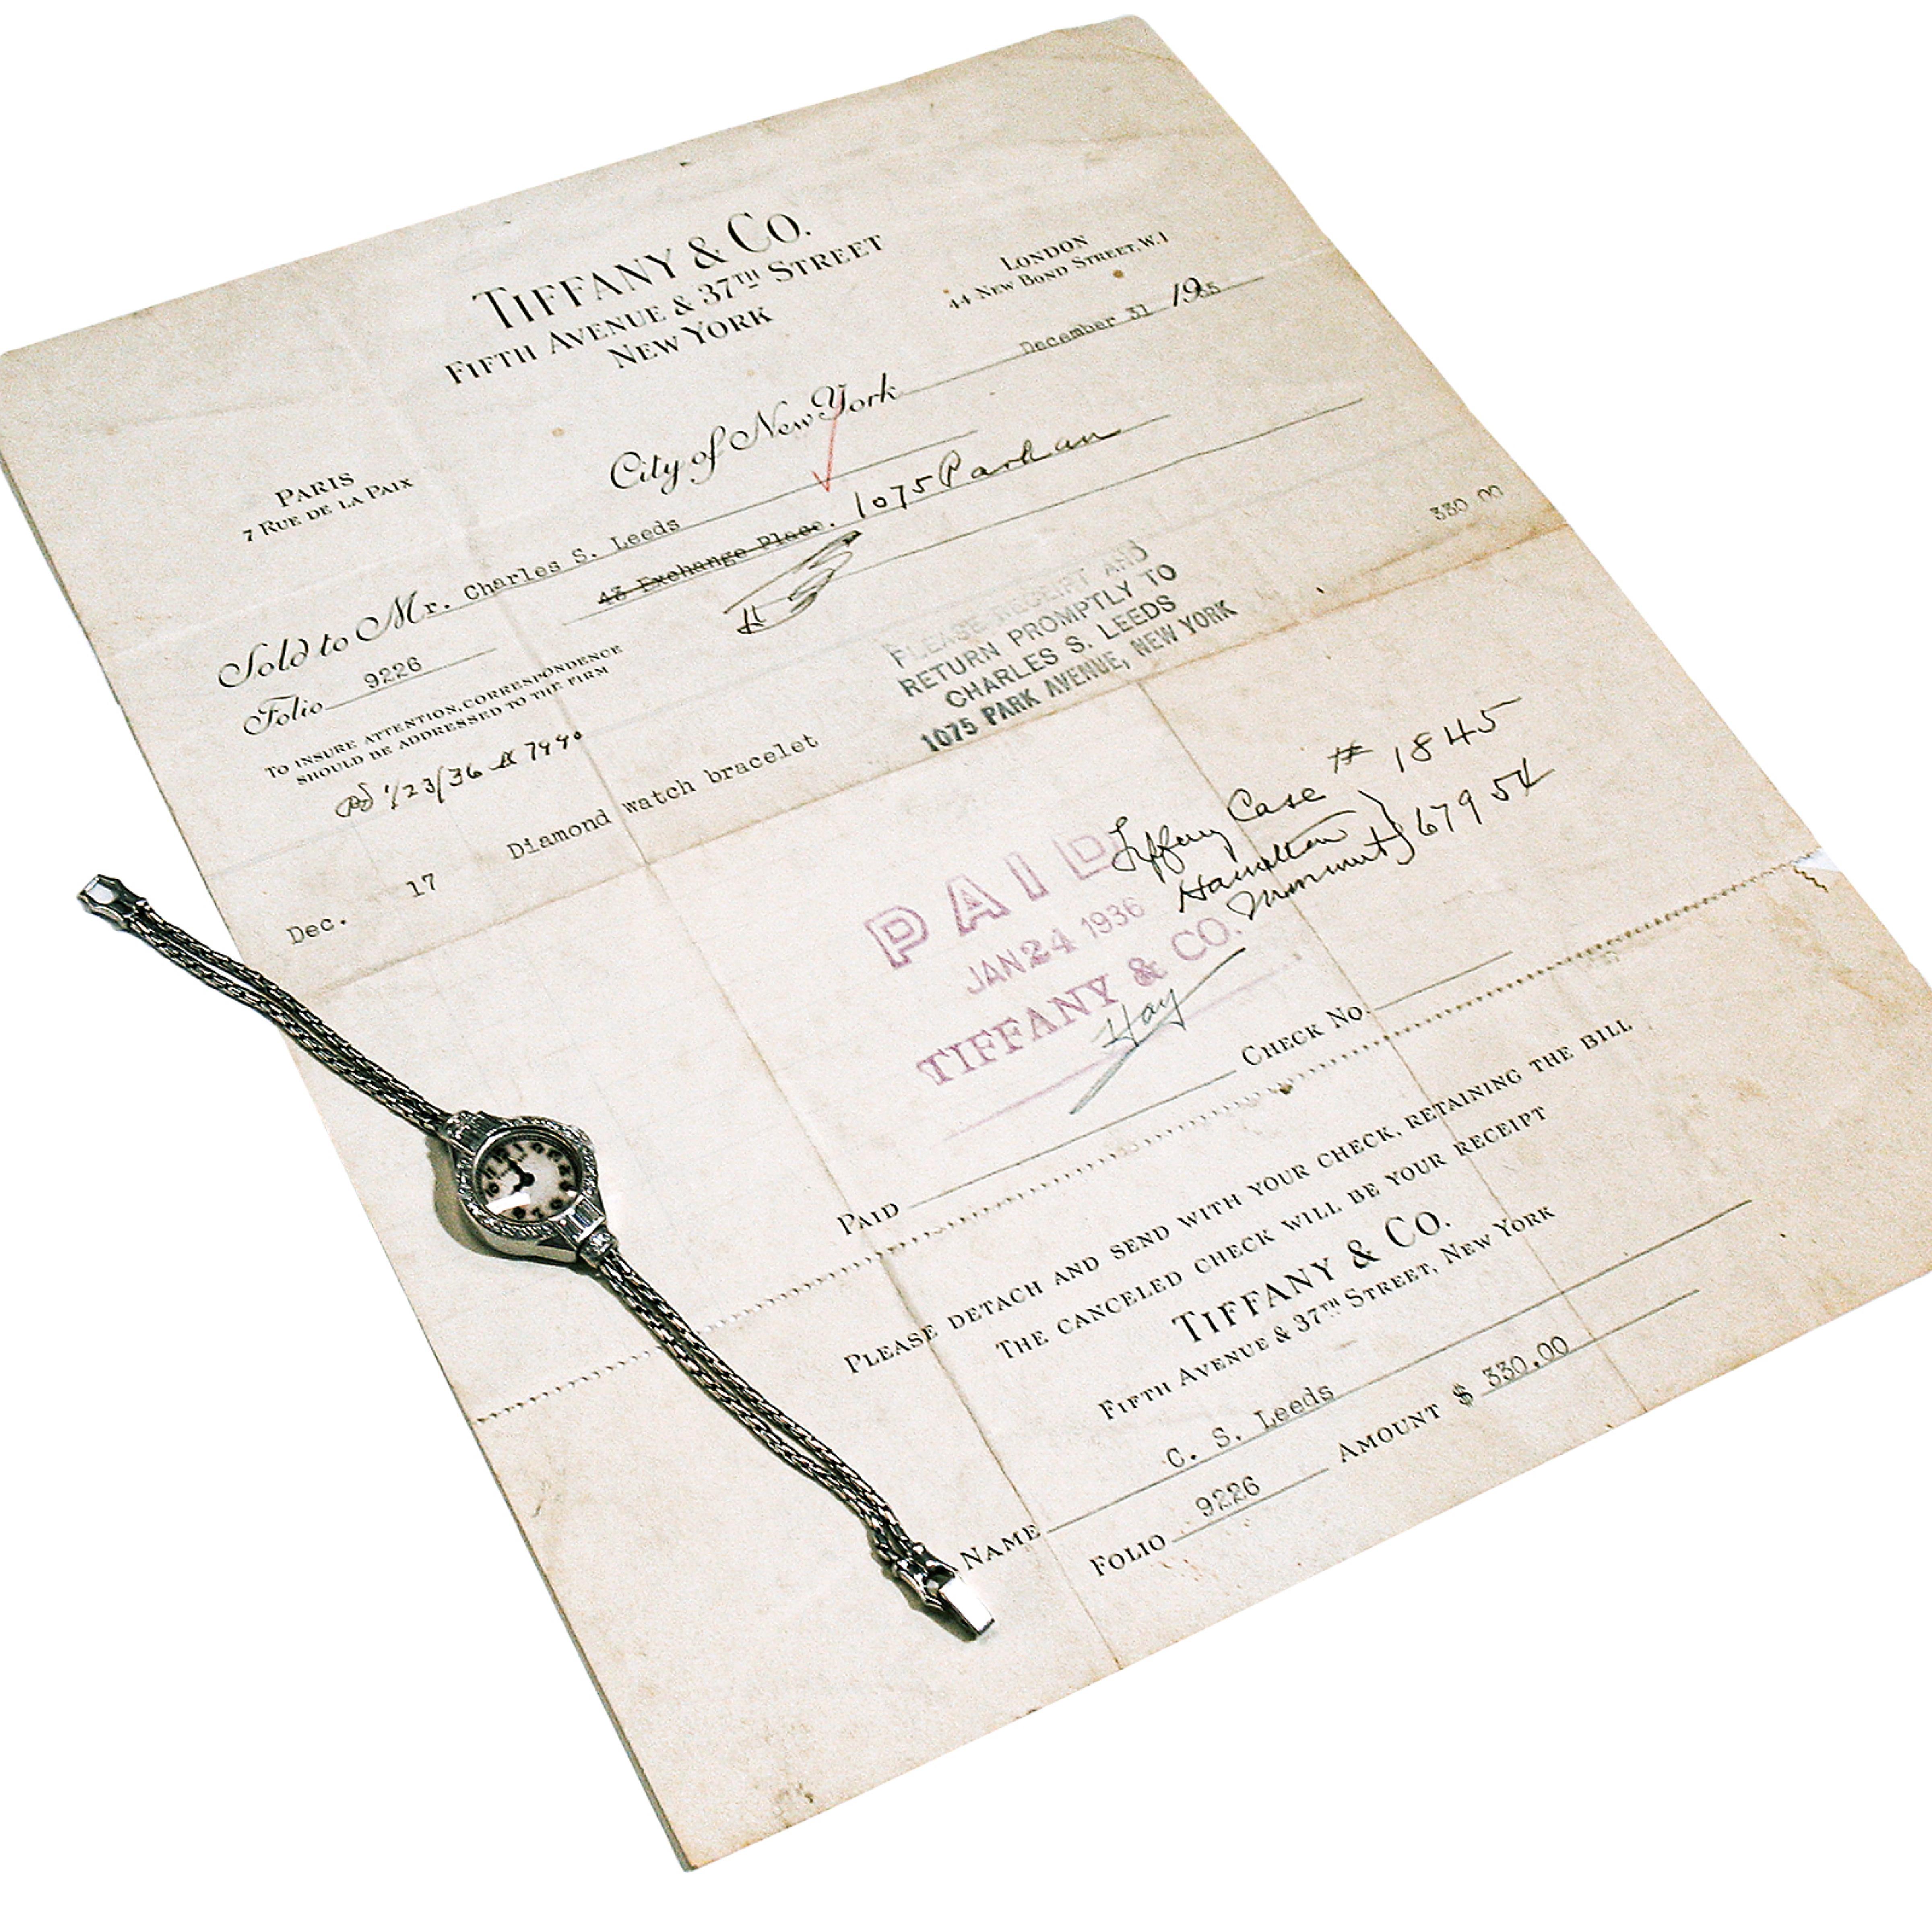 TIFFANY & CO.
FIFTH AVENUE & 37TH STREET
NEW YORK
LONDON
44 NEW BOND STREET, W.1
PARIS
7 RUE DE LA PAIX
City of New York December 31 1935
Sold to Mr. Charles S. Leeds
43 Exchange Place. 1075 Park av
Folio 9226
TO INSURE ATTENTION, CORRESPONDENCE
SHOULD BE ADDRESSED TO THE FIRM
Pd 1/23/36 7990
PLEASE RECEIPT AND
RETURN PROMPTLY TO
CHARLES S. LEEDS
1075 PARK AVENUE, NEW YORK
Dec. 17 Diamond watch bracelet 330 00
Tiffany Case # 1845
Hamilton
Movement} 67954
PAID
JAN 24 1936
TIFFANY & CO.
Hay
PAID CHECK NO.
PLEASE DETACH AND SEND WITH YOUR CHECK, RETAINING THE BILL
THE CANCELED CHECK WILL BE YOUR RECEIPT
TIFFANY & CO.
FIFTH AVENUE & 37TH STREET, NEW YORK
NAME C. S. Leeds
FOLIO 9226 AMOUNT $ 330.00